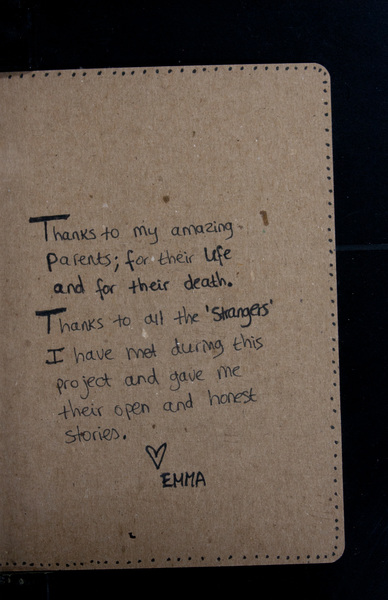 Thanks to my amazing
Parents; for their life
and for their death.
Thanks to all the 'Strangers'
I have met during this
project and gave me
their open and honest
stories.
EMMA